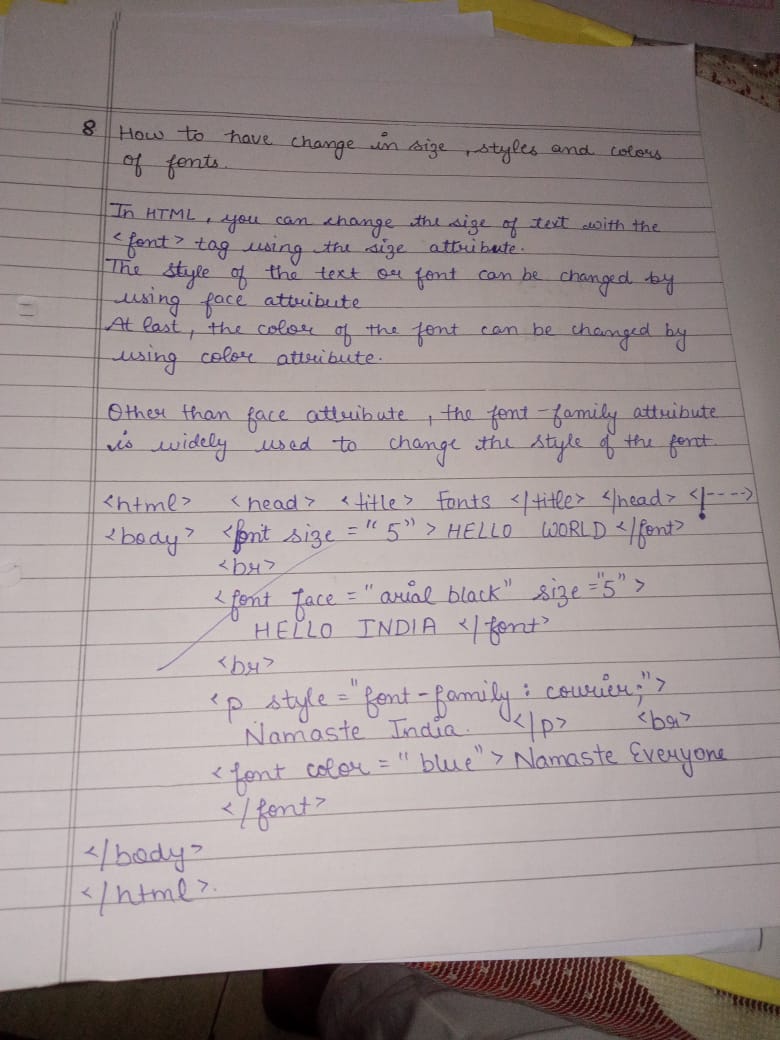 8 How to have change in size, styles and colors
of fonts.
In HTML, you can change the size of text with the
<font> tag using the size attribute.
The style of the text or font can be changed by
using face attribute
At last, the color of the font can be changed by
using color attribute.
Other than face attribute, the font-family attribute
is widely used to change the style of the font.
<html> <head> <title> Fonts </title> </head> <!---->
<body> <font size = "5"> HELLO WORLD </font>
<br>
<font face = "arial black" size = "5">
HELLO INDIA </font>
<br>
<p style = "font-family: courier;">
Namaste India. </p> <br>
<font color = "blue"> Namaste Everyone
</font>
</body>
</html>.